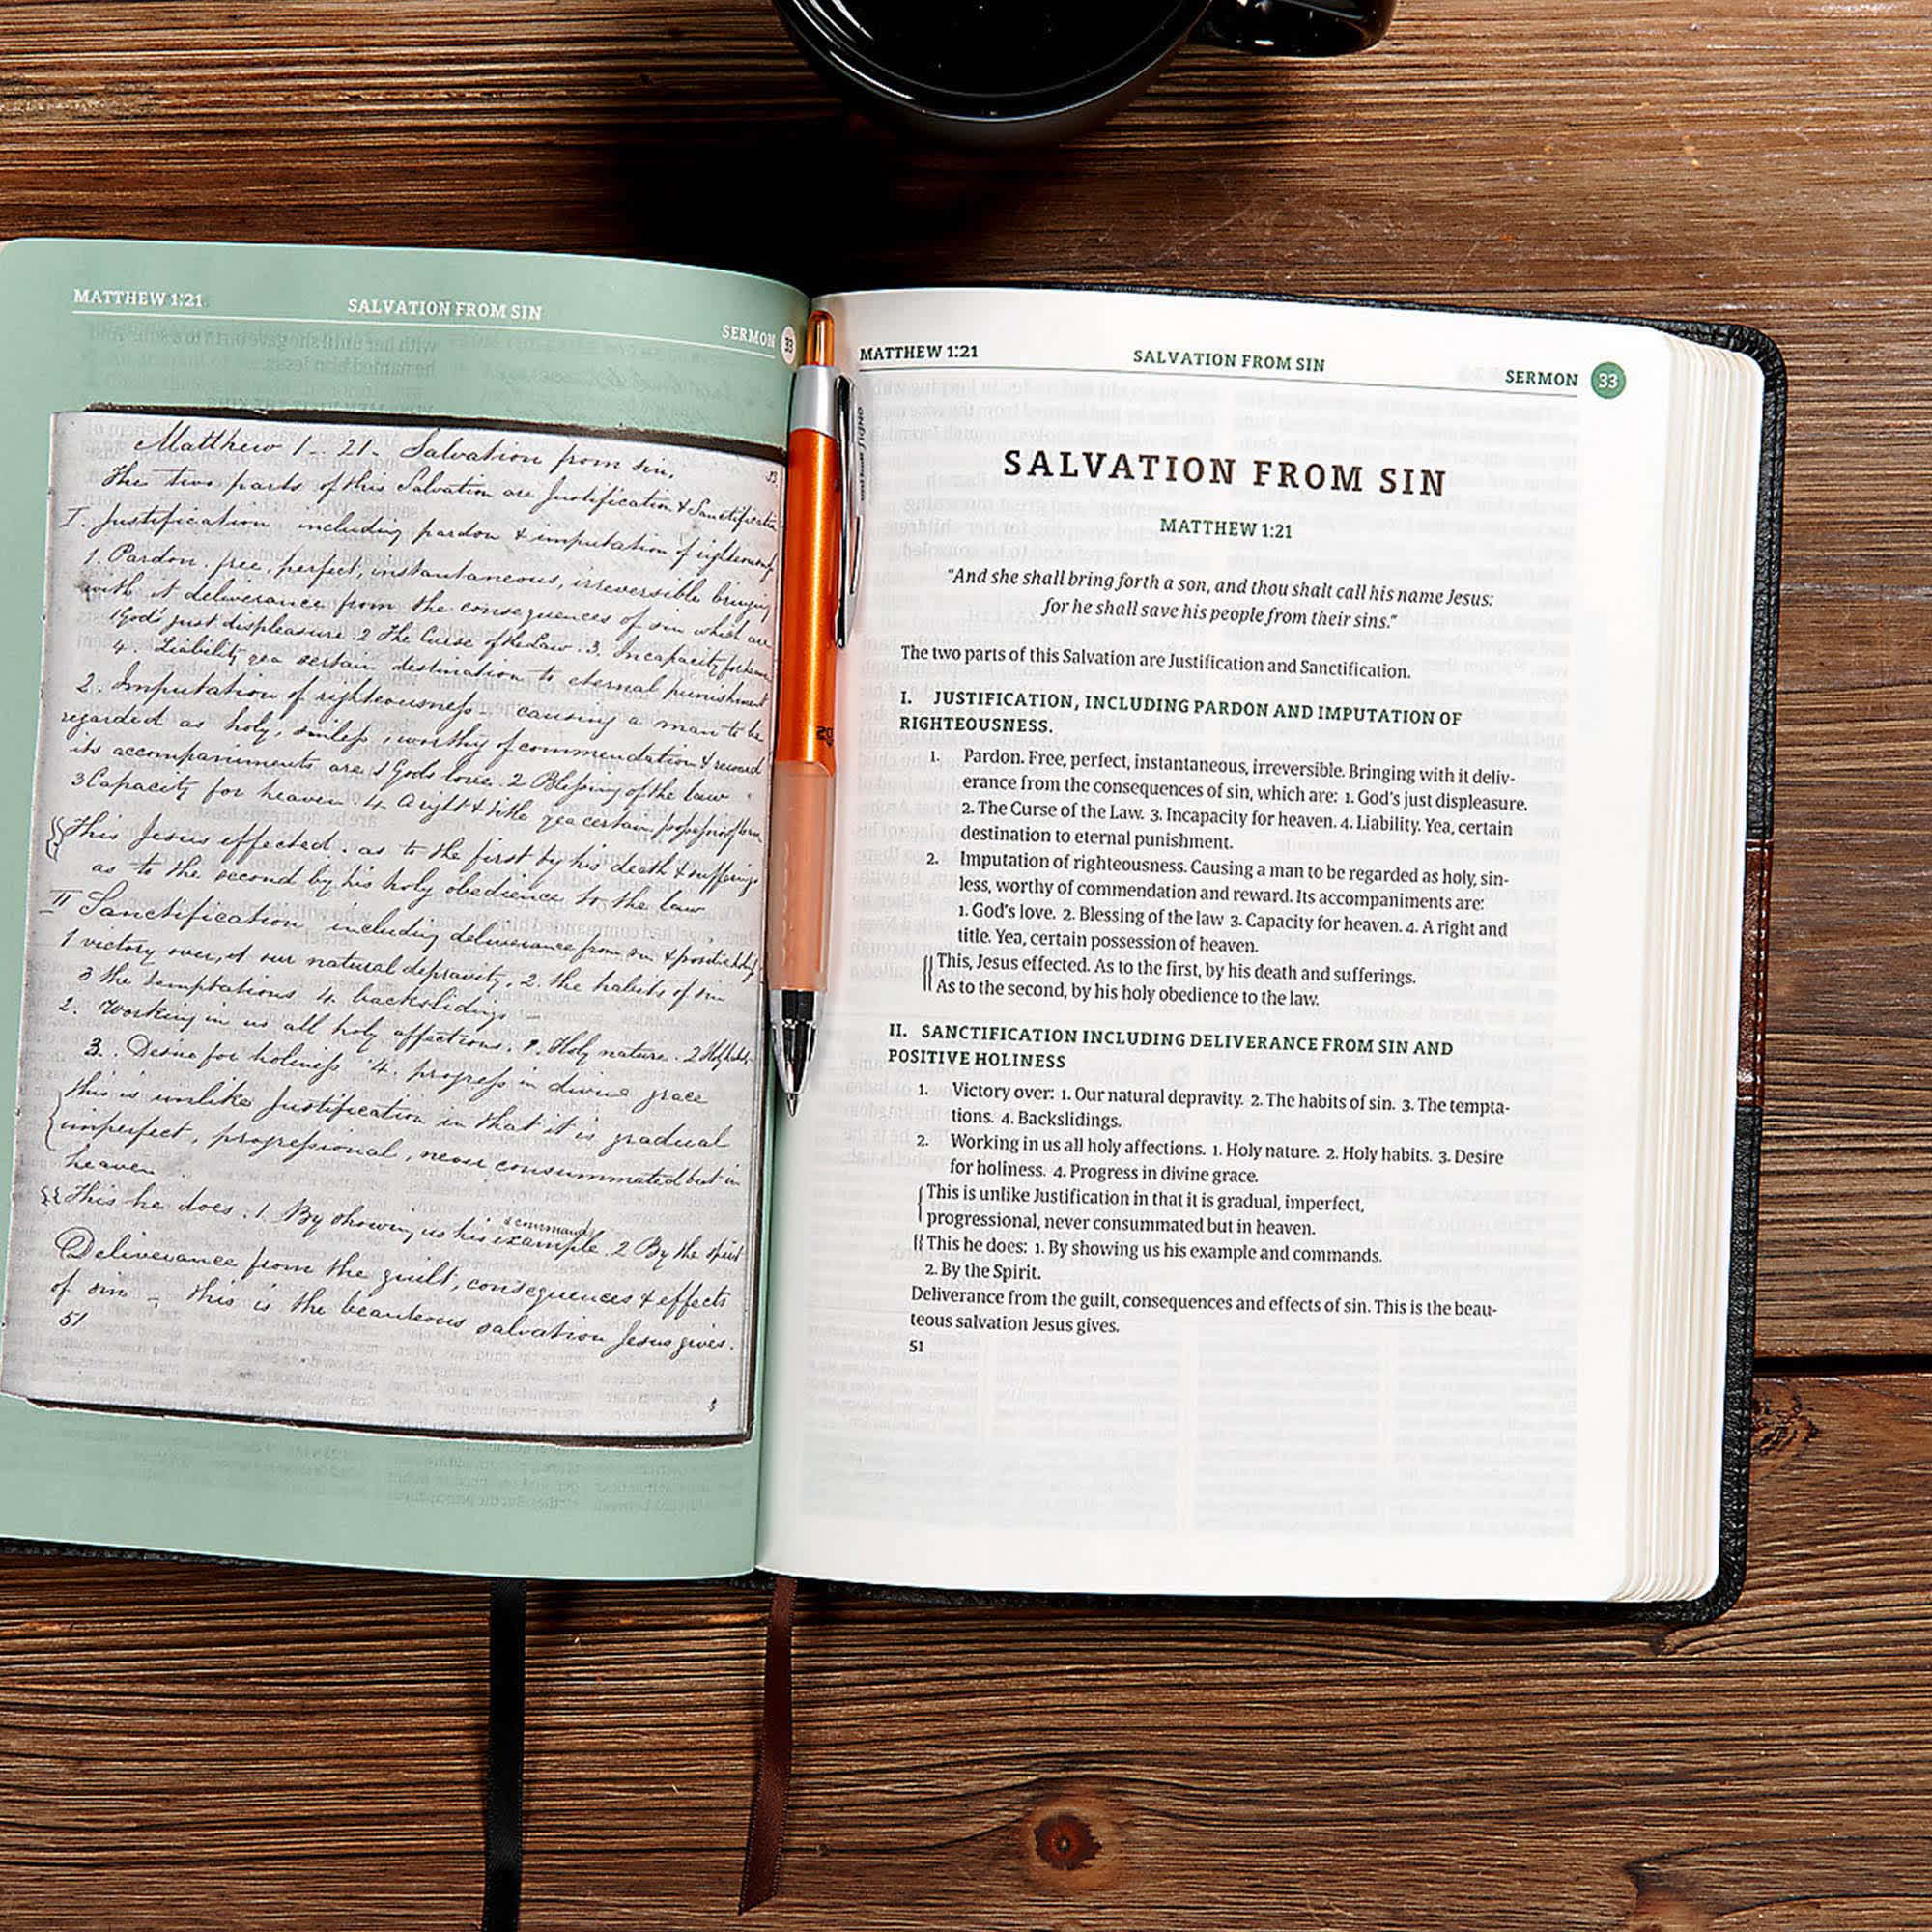 MATTHEW 1:21
SALVATION FROM SIN
SERMON 33
Matthew 1 - 21 - Salvation from sin,
The two parts of this Salvation are Justification & Sanctification
I. Justification including pardon & imputation of righteousness
1. Pardon. free, perfect, instantaneous, irreversible bringing
with it deliverance from the consequences of sin which are
1 God's just displeasure. 2 The Curse of the Law. 3. Incapacity for heaven
4. Liability yea certain destination to eternal punishment
2. Imputation of righteousness. causing a man to be
regarded as holy, sinless, worthy of commendation & reward
its accompaniments are 1 Gods love. 2 Blessing of the law
3 Capacity for heaven. 4. A right & title yea certain
This Jesus effected. as to the first by his death & sufferings
as to the second by his holy obedience to the law
II Sanctification including deliverance from sin &
1 victory over, of our natural depravity. 2. the habits of sin
3 the temptations. 4. backslidings
2. Working in us all holy affections. 1. Holy nature. 2 Holy habits
3. Desire for holiness 4. progress in divine grace
this is unlike Justification in that it is gradual
imperfect, progressional, never consummated but in
heaven
This he does. 1. By showing us his example & commands. 2 By the spirit
Deliverance from the guilt, consequences & effects
of sin - this is the beauteous salvation Jesus gives.
51
MATTHEW 1:21
SALVATION FROM SIN
SERMON 33
SALVATION FROM SIN
MATTHEW 1:21
"And she shall bring forth a son, and thou shalt call his name Jesus:
for he shall save his people from their sins."
The two parts of this Salvation are Justification and Sanctification.
I. JUSTIFICATION, INCLUDING PARDON AND IMPUTATION OF
RIGHTEOUSNESS.
1. Pardon. Free, perfect, instantaneous, irreversible. Bringing with it deliv-
erance from the consequences of sin, which are: 1. God's just displeasure.
2. The Curse of the Law. 3. Incapacity for heaven. 4. Liability. Yea, certain
destination to eternal punishment.
2. Imputation of righteousness. Causing a man to be regarded as holy, sin-
less, worthy of commendation and reward. Its accompaniments are:
1. God's love. 2. Blessing of the law 3. Capacity for heaven. 4. A right and
title. Yea, certain possession of heaven.
This, Jesus effected. As to the first, by his death and sufferings.
As to the second, by his holy obedience to the law.
II. SANCTIFICATION INCLUDING DELIVERANCE FROM SIN AND
POSITIVE HOLINESS
1. Victory over: 1. Our natural depravity. 2. The habits of sin. 3. The tempta-
tions. 4. Backslidings.
2. Working in us all holy affections. 1. Holy nature. 2. Holy habits. 3. Desire
for holiness. 4. Progress in divine grace.
This is unlike Justification in that it is gradual, imperfect,
progressional, never consummated but in heaven.
This he does: 1. By showing us his example and commands.
2. By the Spirit.
Deliverance from the guilt, consequences and effects of sin. This is the beau-
teous salvation Jesus gives.
51